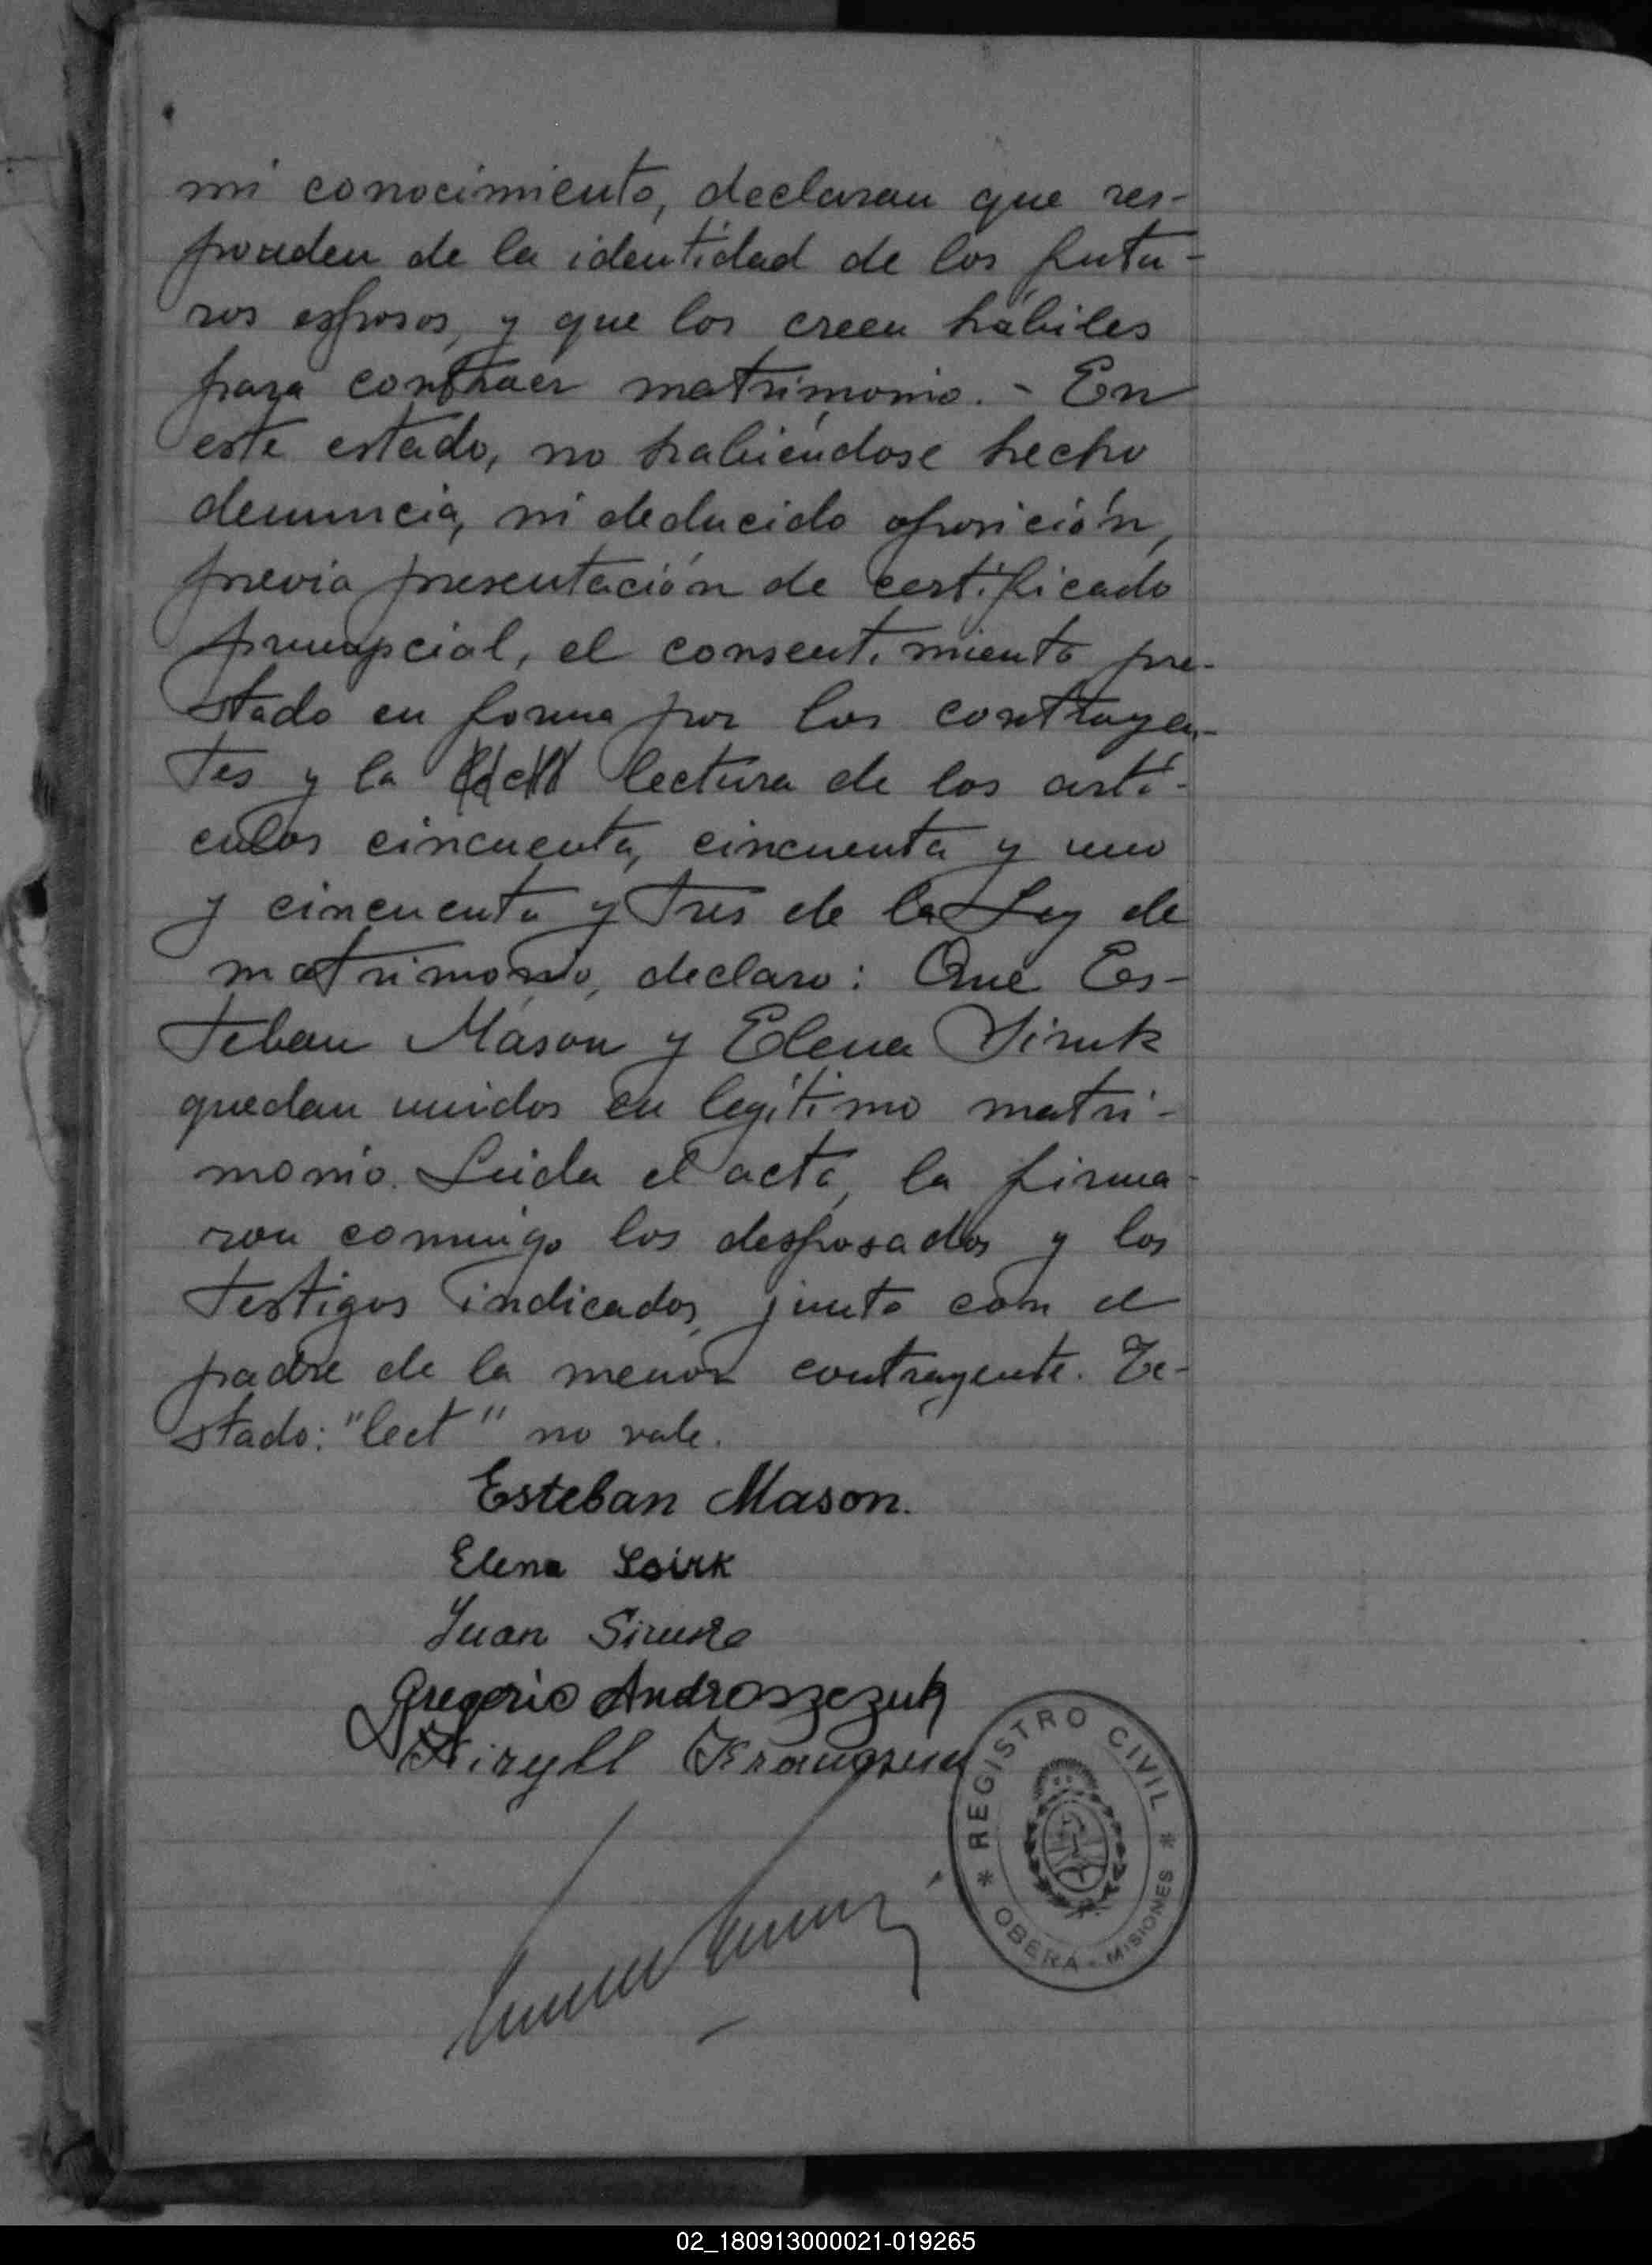 mi conocimiento, declaran que res-
ponden de la identidad de los futu-
ros esposos, y que los creen hábiles
para contraer matrimonio. - En
este estado, no habiéndose hecho
denuncia, ni deducido oposición,
previa presentación de certificado
prenupcial, el consentimiento pre-
stado en forma por los contrayen-
tes y la lectura de los artí-
culos cincuenta, cincuenta y uno
y cincuenta y tres de la Ley de
matrimonio, declaro: Que Es-
teban Mason y Elena Siruk
quedan unidos en legítimo matri-
monio. Leída el acta, la firma-
ron conmigo los desposados y los
testigos indicados, junto con el
padre de la menor contrayente. Te-
stado: "lect" no vale.
Esteban Mason.
Elena
Juan
Gregorio Androszczuk
Kiryll
* REGISTRO CIVIL *
OBERA - MISIONES
02_180913000021-019265